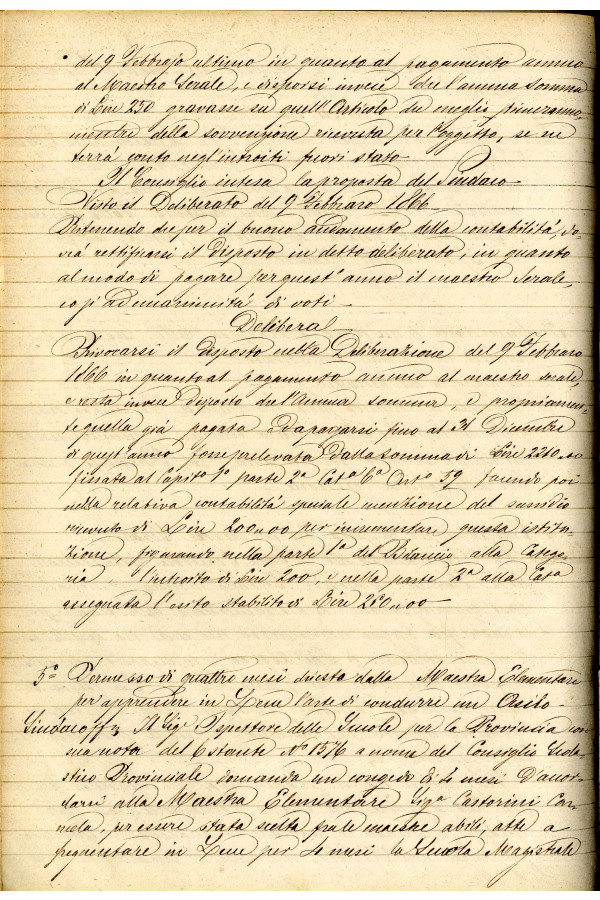 del 9 Febbrajo ultimo in quanto al pagamento annuo
al Maestro Serale, e disporsi invece che l'annua somma
di Lire 250 gravasse su quell'Articolo che meglio
mentre della sovvenzione ricevuta per l'oggetto, se ne
terrà conto negl'introiti fuori stato
Il Consiglio intesa la proposta del Sindaco
Visto il Deliberato del 9 Febbraro 1866
Ritenendo che per il buono andamento della contabilità, do-
vrà rettificarsi il disposto in detto deliberato, in quanto
al modo di pagare per quest'anno il maestro Serale,
così ad unanimità di voti
Delibera
Rivocarsi il disposto nella Deliberazione del 9 Febbraro
1866 in quanto al pagamento annuo al maestro serale,
e resta invece disposto che l'Annua somma, e propriamen-
te quella già pagata e da pagarsi fino al 31 Dicembre
di quest'anno fosse prelevata dalla somma di Lire 2210.00
fissata al Capito 1° parte 2a Cata 6a Arto 59 facendo poi
nella relativa contabilità speciale menzione del sussidio
ricevuto di Lire 200,00 per incrementare questa istitu-
zione, figurando nella parte 1a del Bilancio alla Catego-
ria l'introito di Lire 200, e nella parte 2a alla Cata
assegnata l'esito stabilito di Lire 250,00
5° Permesso di quattro mesi chiesto dalla Maestra Elementare
per apprendere in Lecce l'arte di condurre un Asilo
Sindaco ff Il Sigr Ispettore delle Scuole per la Provincia con
sua nota del 6 stante No 1576 a nome del Consiglio Scola-
stico Provinciale domanda un congedo di 4 mesi d'accor-
darsi alla Maestra Elementare Siga Castorini Car-
mela, per essere stata scelta fra le maestre abili, atte a
frequentare in Lecce per 4 mesi la Scuola Magistrale